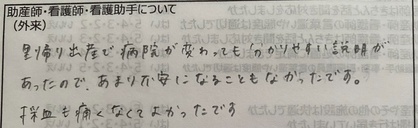 助産師・看護師・看護助手について
(外来)
里帰り出産で病院が変わっても分かりやすい説明が
あったので、あまり不安になることもなかったです。
採血も痛くなくてよかったです